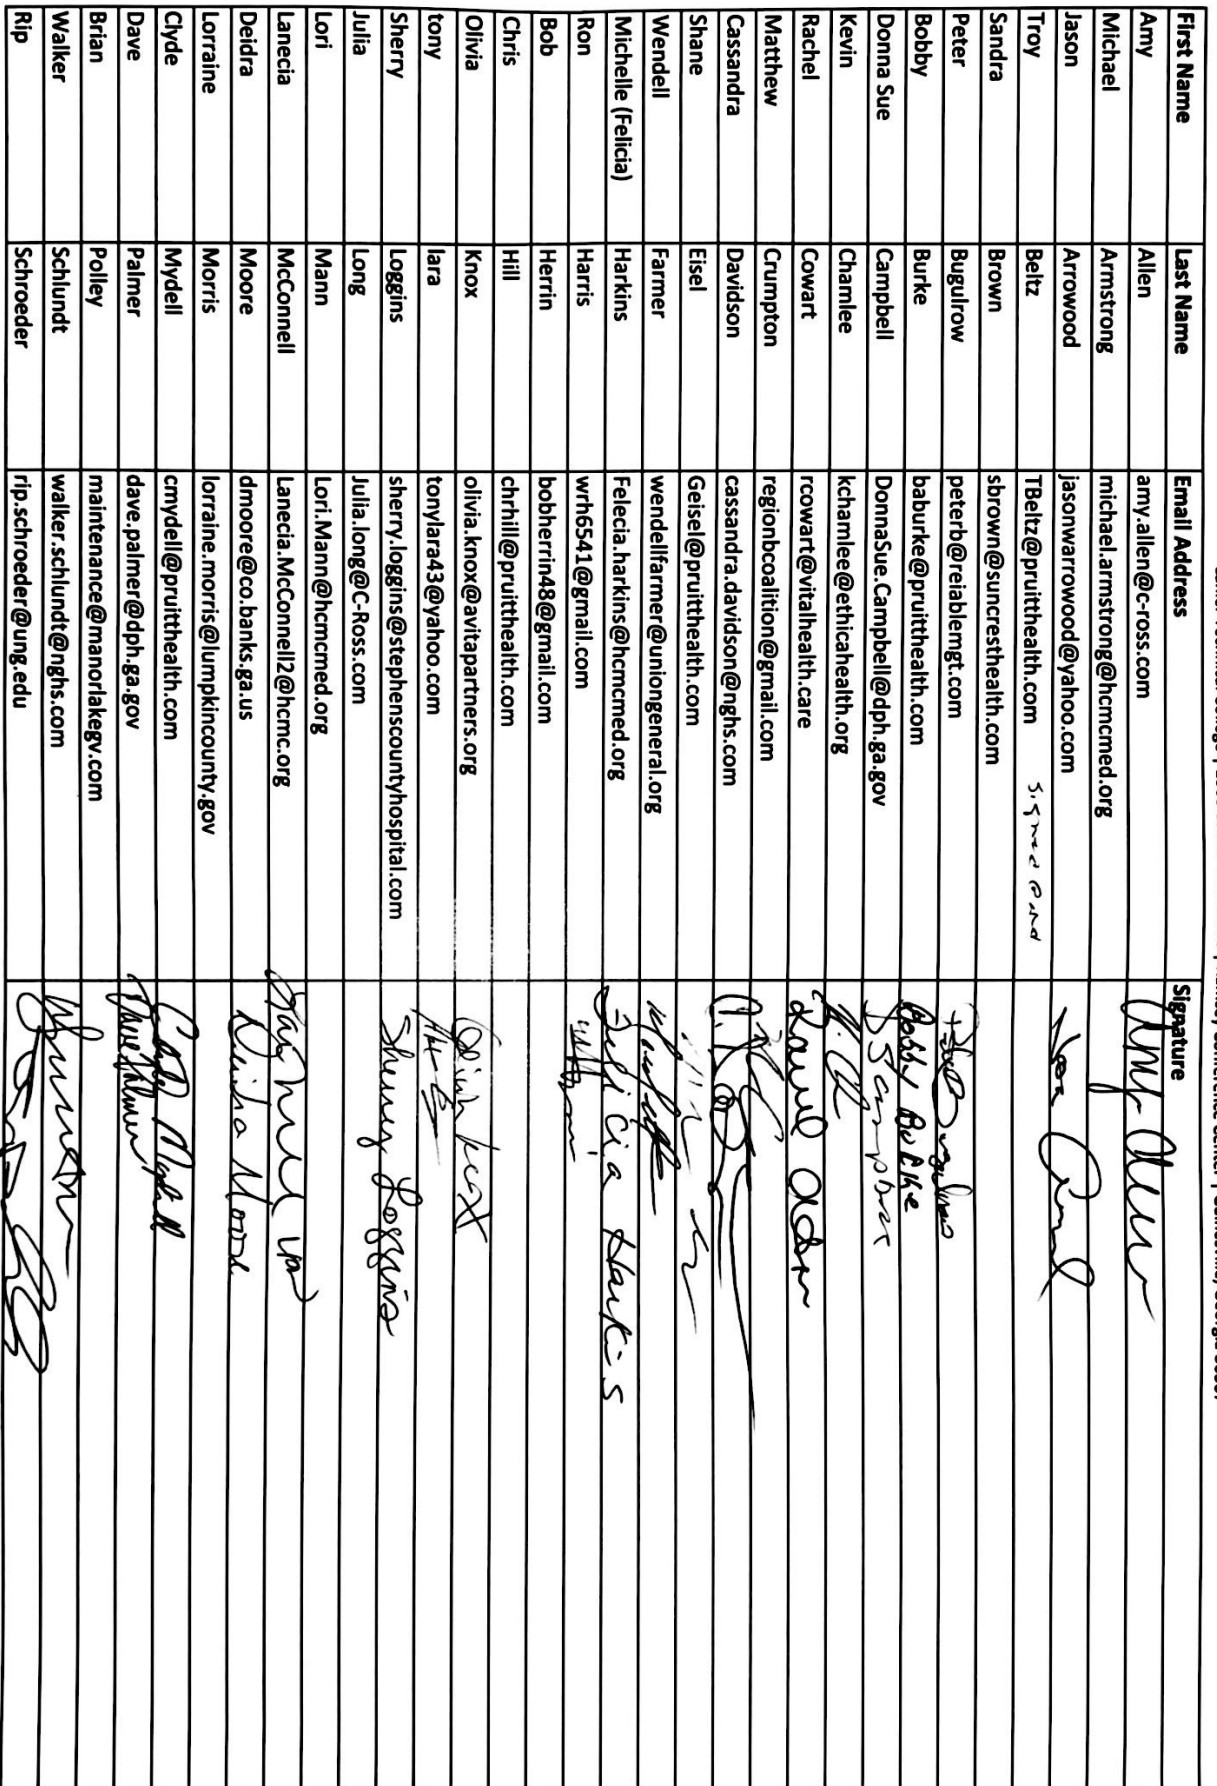 First Name Last Name Email Address Signature
Amy Allen amy.allen@c-ross.com Amy Allen
Michael Armstrong michael.armstrong@hcmcmed.org
Jason Arrowood jasonwarrowood@yahoo.com
Troy Beltz TBeltz@pruitthealth.com signed
Sandra Brown sbrown@suncresthealth.com
Peter Bugulrow peterb@reiablemgt.com
Bobby Burke baburke@pruitthealth.com Bobby Burke
Donna Sue Campbell DonnaSue.Campbell@dph.ga.gov DS Campbell
Kevin Chamlee kchamlee@ethicahealth.org
Rachel Cowart rcowart@vitalhealth.care
Matthew Crumpton regionbcoalition@gmail.com
Cassandra Davidson cassandra.davidson@nghs.com
Shane Eisel Geisel@pruitthealth.com
Wendell Farmer wendellfarmer@uniongeneral.org
Michelle (Felicia) Harkins Felecia.harkins@hcmcmed.org Felicia Harkins
Ron Harris wrh6541@gmail.com
Bob Herrin bobherrin48@gmail.com
Chris Hill chrhill@pruitthealth.com
Olivia Knox olivia.knox@avitapartners.org Olivia Knox
tony lara tonylara43@yahoo.com
Sherry Loggins sherry.loggins@stephenscountyhospital.com Sherry Loggins
Julia Long Julia.long@C-Ross.com
Lori Mann Lori.Mann@hcmcmed.org
Lanecia McConnell Lanecia.McConnell2@hcmc.org
Deidra Moore dmoore@co.banks.ga.us Deidra Moore
Lorraine Morris lorraine.morris@lumpkincounty.gov
Clyde Mydell cmydell@pruitthealth.com Clyde Mydell
Dave Palmer dave.palmer@dph.ga.gov Dave Palmer
Brian Polley maintenance@manorlakegv.com
Walker Schlundt walker.schlundt@nghs.com
Rip Schroeder rip.schroeder@ung.edu